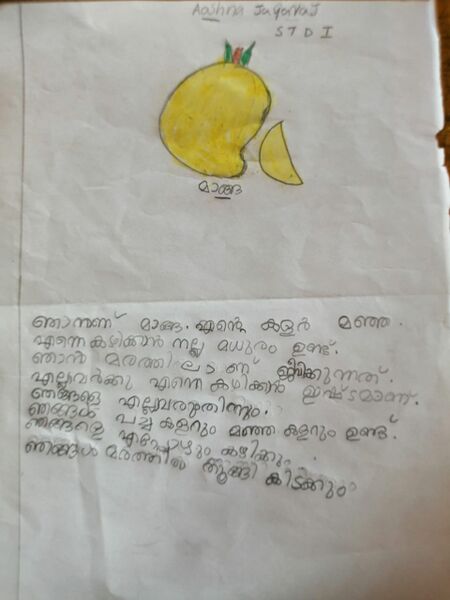 Aashna Jagaraj
STD I
മാങ്ങ
ഞാനണ് മാങ്ങ. എൻ്റെ കളർ മഞ്ഞ.
എന്നെ കഴിക്കൻ നല്ല മധുരം ഉണ്ട്.
ഞാൻ മരത്തിലാണ് ജീവിക്കുന്നത്.
എല്ലവർക്കു എന്നെ കഴിക്കൻ ഇഷ്ടമാണ്.
ഞങ്ങളെ എല്ലവരുതിന്നും.
ഞങ്ങൾ പച്ച കളറും മഞ്ഞ കളറും ഉണ്ട്.
ഞങ്ങളെ എപ്പോഴും കഴിക്കും.
ഞങ്ങൾ മരത്തിൽ തൂങ്ങി കിടക്കും